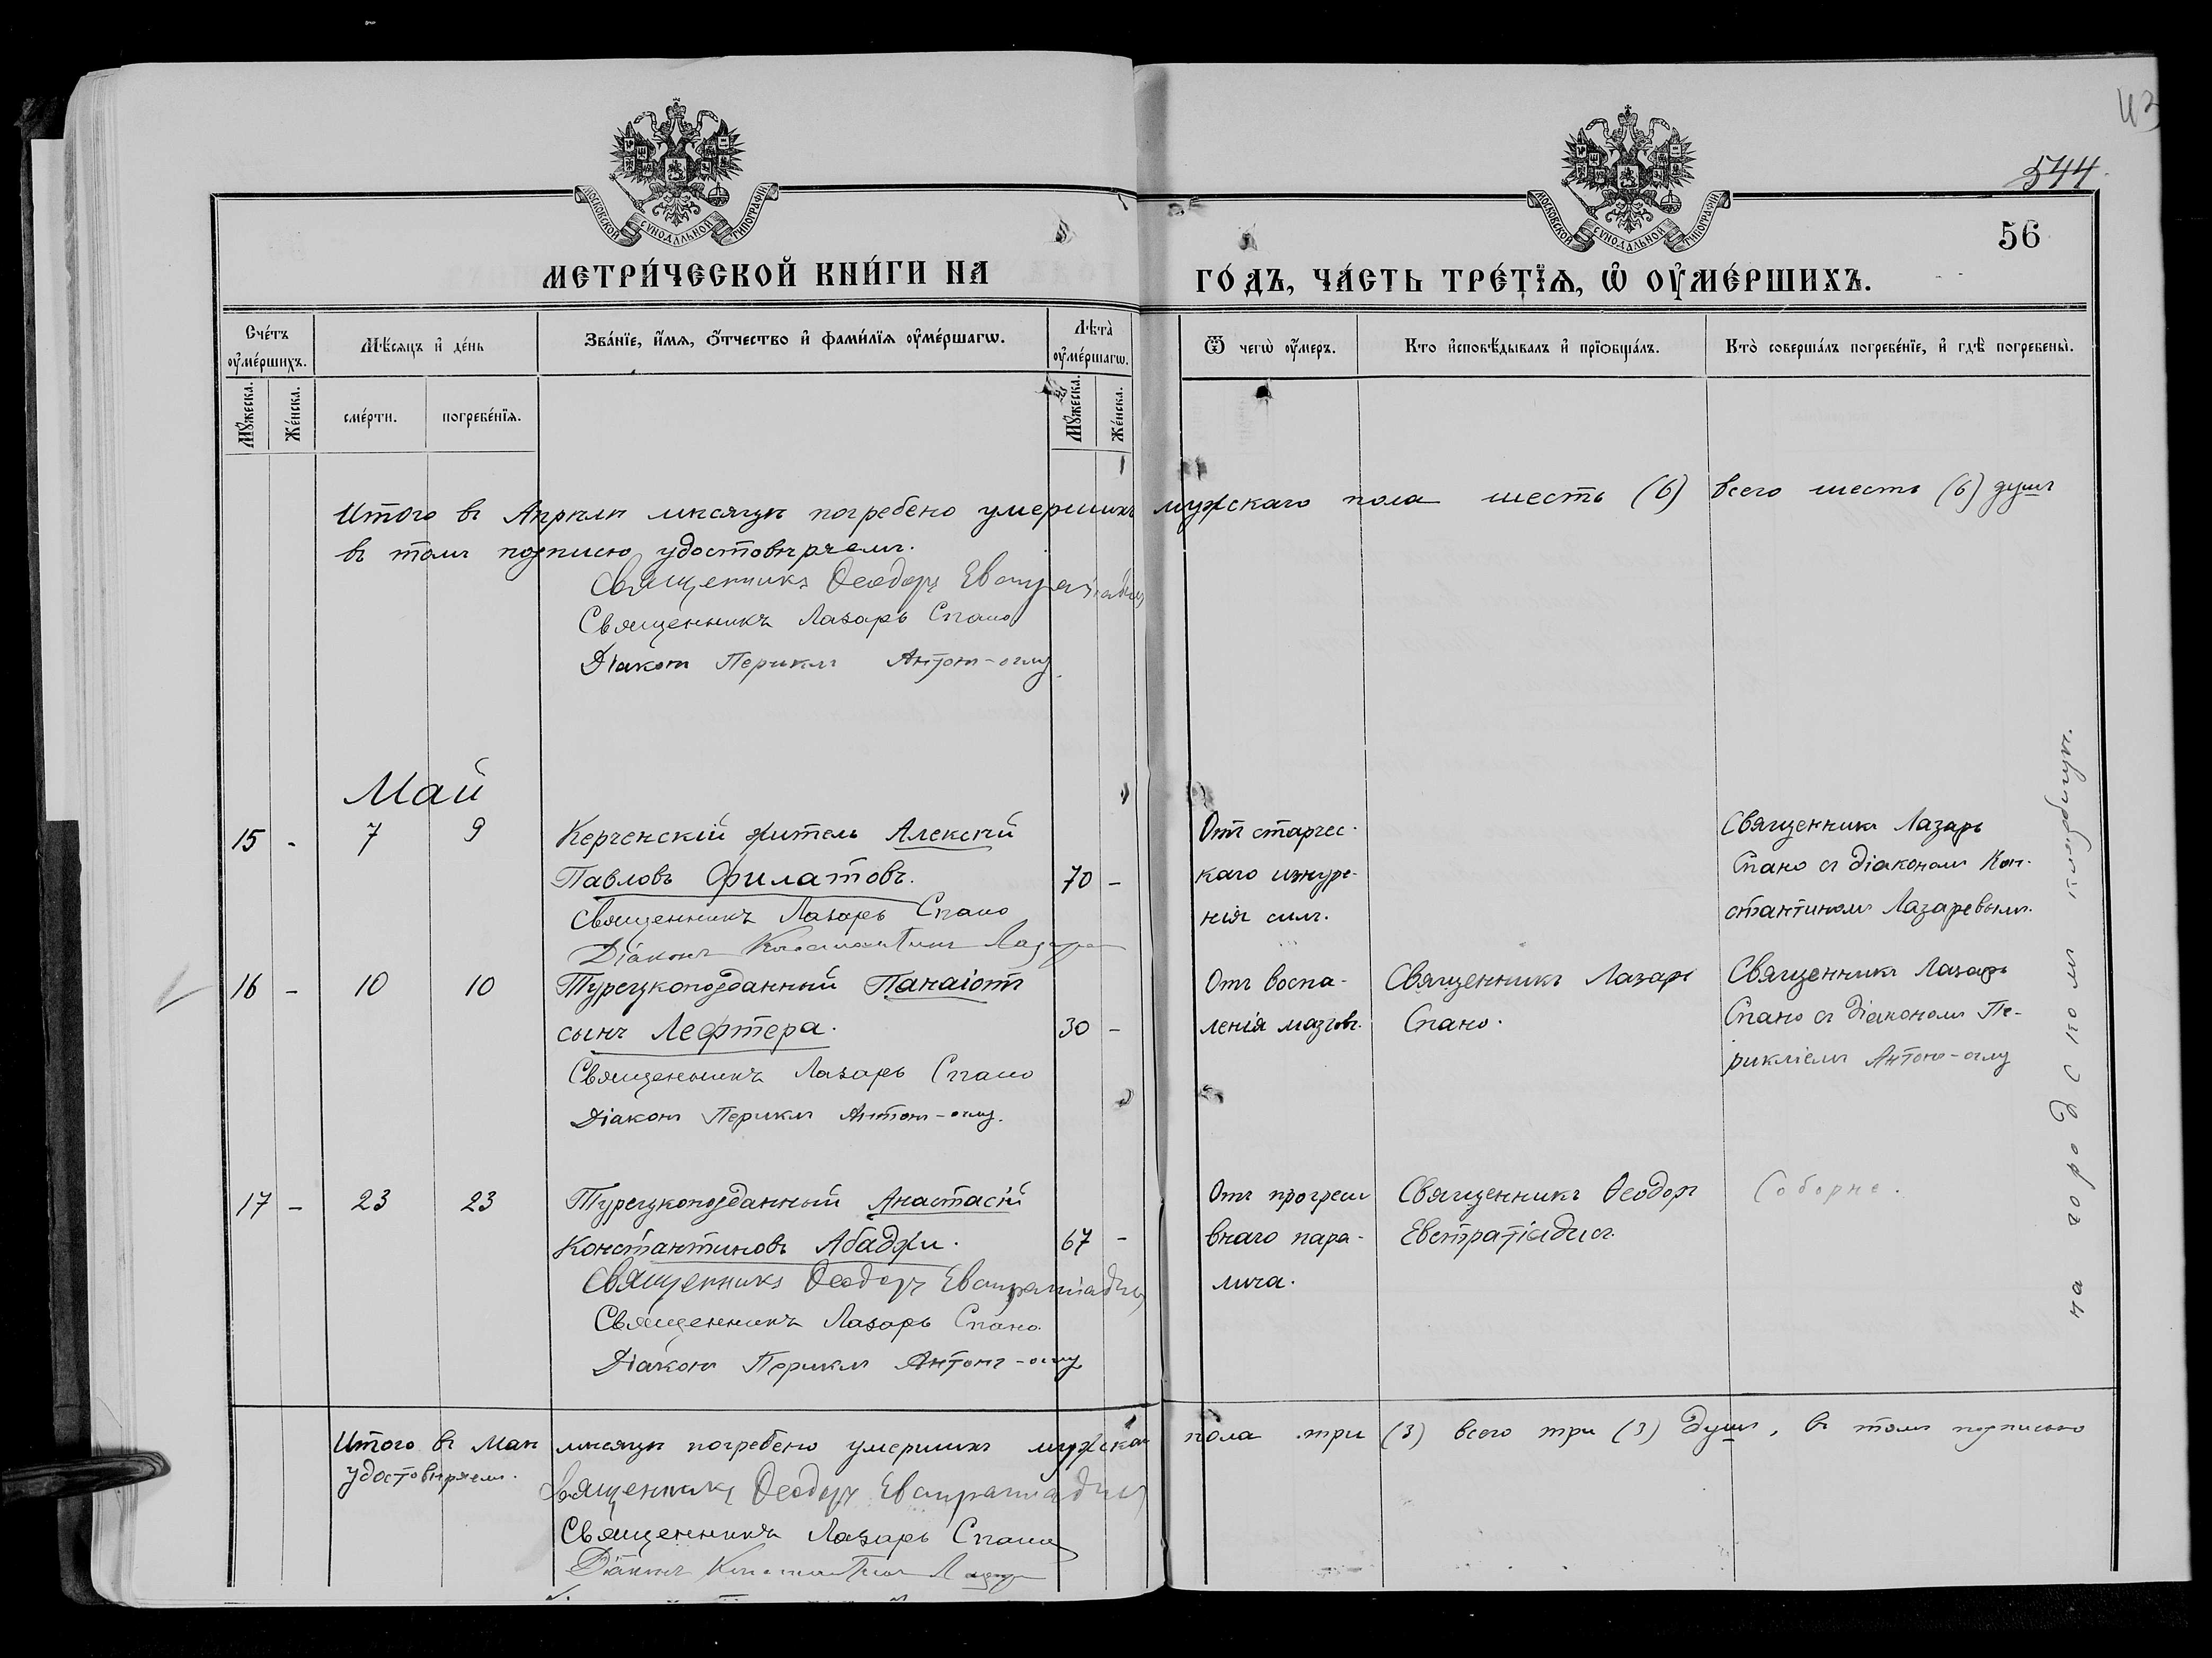 43
544.
56
МОСКОВСКОЙ СѴНОДАЛЬНОЙ ТИПОГРАФІИ
МОСКОВСКОЙ СѴНОДАЛЬНОЙ ТИПОГРАФІИ
МЕТРИ́ЧЕСКОЙ КНИ́ГИ НА ГО́ДЪ, ЧА́СТЬ ТРЕ́ТЇѦ, Ѡ҆ ОУ҆МЕ́РШИХЪ.
Сче́тъ оу҆ме́ршихъ.
Мѣ́сѧцъ и҆ де́нь
Зва́нїе, и҆́мѧ, ѻ҆́тчество и҆ фами́лїѧ оу҆ме́ршагѡ.
Лѣ́та оу҆ме́ршагѡ.
Ѿ чегѡ̀ оу҆́меръ.
Кто̀ и҆сповѣ́дывалъ и҆ прїѡбща́лъ.
Кто̀ соверша́лъ погребе́нїе, и҆ гдѣ̀ погребены̀.
Мꙋ́жеска.
Же́нска.
сме́рти.
погребе́нїѧ.
Мꙋ́жеска.
Же́нска.
Итого въ Апрѣлѣ мѣсяцѣ погребено умершихъ мужскаго пола шесть (6) всего шесть (6) душъ
въ томъ подписью удостовѣряемъ.
Священникъ Ѳеодоръ Евстратіадисъ
Священникъ Лазарь Спано
Діаконъ Периклъ Антонъ-оглу.
Май
15 - 7 9 Керченскій житель Алексѣй
Павловъ Филатовъ. 70 -
Священникъ Лазарь Спано
Діаконъ Константинъ Лазарев
Отъ старчес-
каго изнуре-
нія силъ.
Священникъ Лазарь
Спано съ діакономъ Кон-
стантиномъ Лазаревымъ.
16 - 10 10 Турецкоподданный Панаіотъ
сынъ Лефтера. 30 -
Священникъ Лазарь Спано
Діаконъ Периклъ Антонъ-оглу.
Отъ воспа-
ленія мозговъ.
Священникъ Лазарь
Спано.
Священникъ Лазарь
Спано съ діакономъ Пе-
рикліемъ Антонъ-оглу
17 - 23 23 Турецкоподданный Анастасій
Константиновъ Абаджи. 67 -
Священникъ Ѳеодоръ Евстратіадисъ
Священникъ Лазарь Спано
Діаконъ Периклъ Антонъ-оглу
Отъ прогреси
внаго пара-
лича.
Священникъ Ѳеодоръ
Евстратіадисъ.
Соборне.
на городскомъ кладбищѣ.
Итого въ Маѣ мѣсяцѣ погребено умершихъ мужскаго пола три (3) всего три (3) душъ, въ томъ подписью
удостовѣряемъ.
Священникъ Ѳеодоръ Евстратіадисъ
Священникъ Лазарь Спано
Діаконъ Константинъ Лазарев